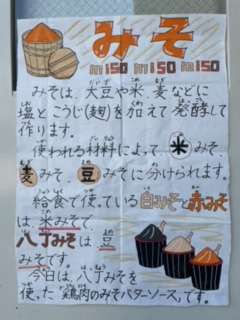 みそ
miso miso miso
みそは、大豆や米、麦などに
塩とこうじ(麹)を加えて発酵して
作ります。
使われる材料によって、米みそ、
麦みそ、豆みそに分けられます。
給食で使っている白みそと赤みそ
は、米みそで、
八丁みそは、豆
みそです。
今日は、八丁みそを
使った「鶏肉のみそバターソース」です。